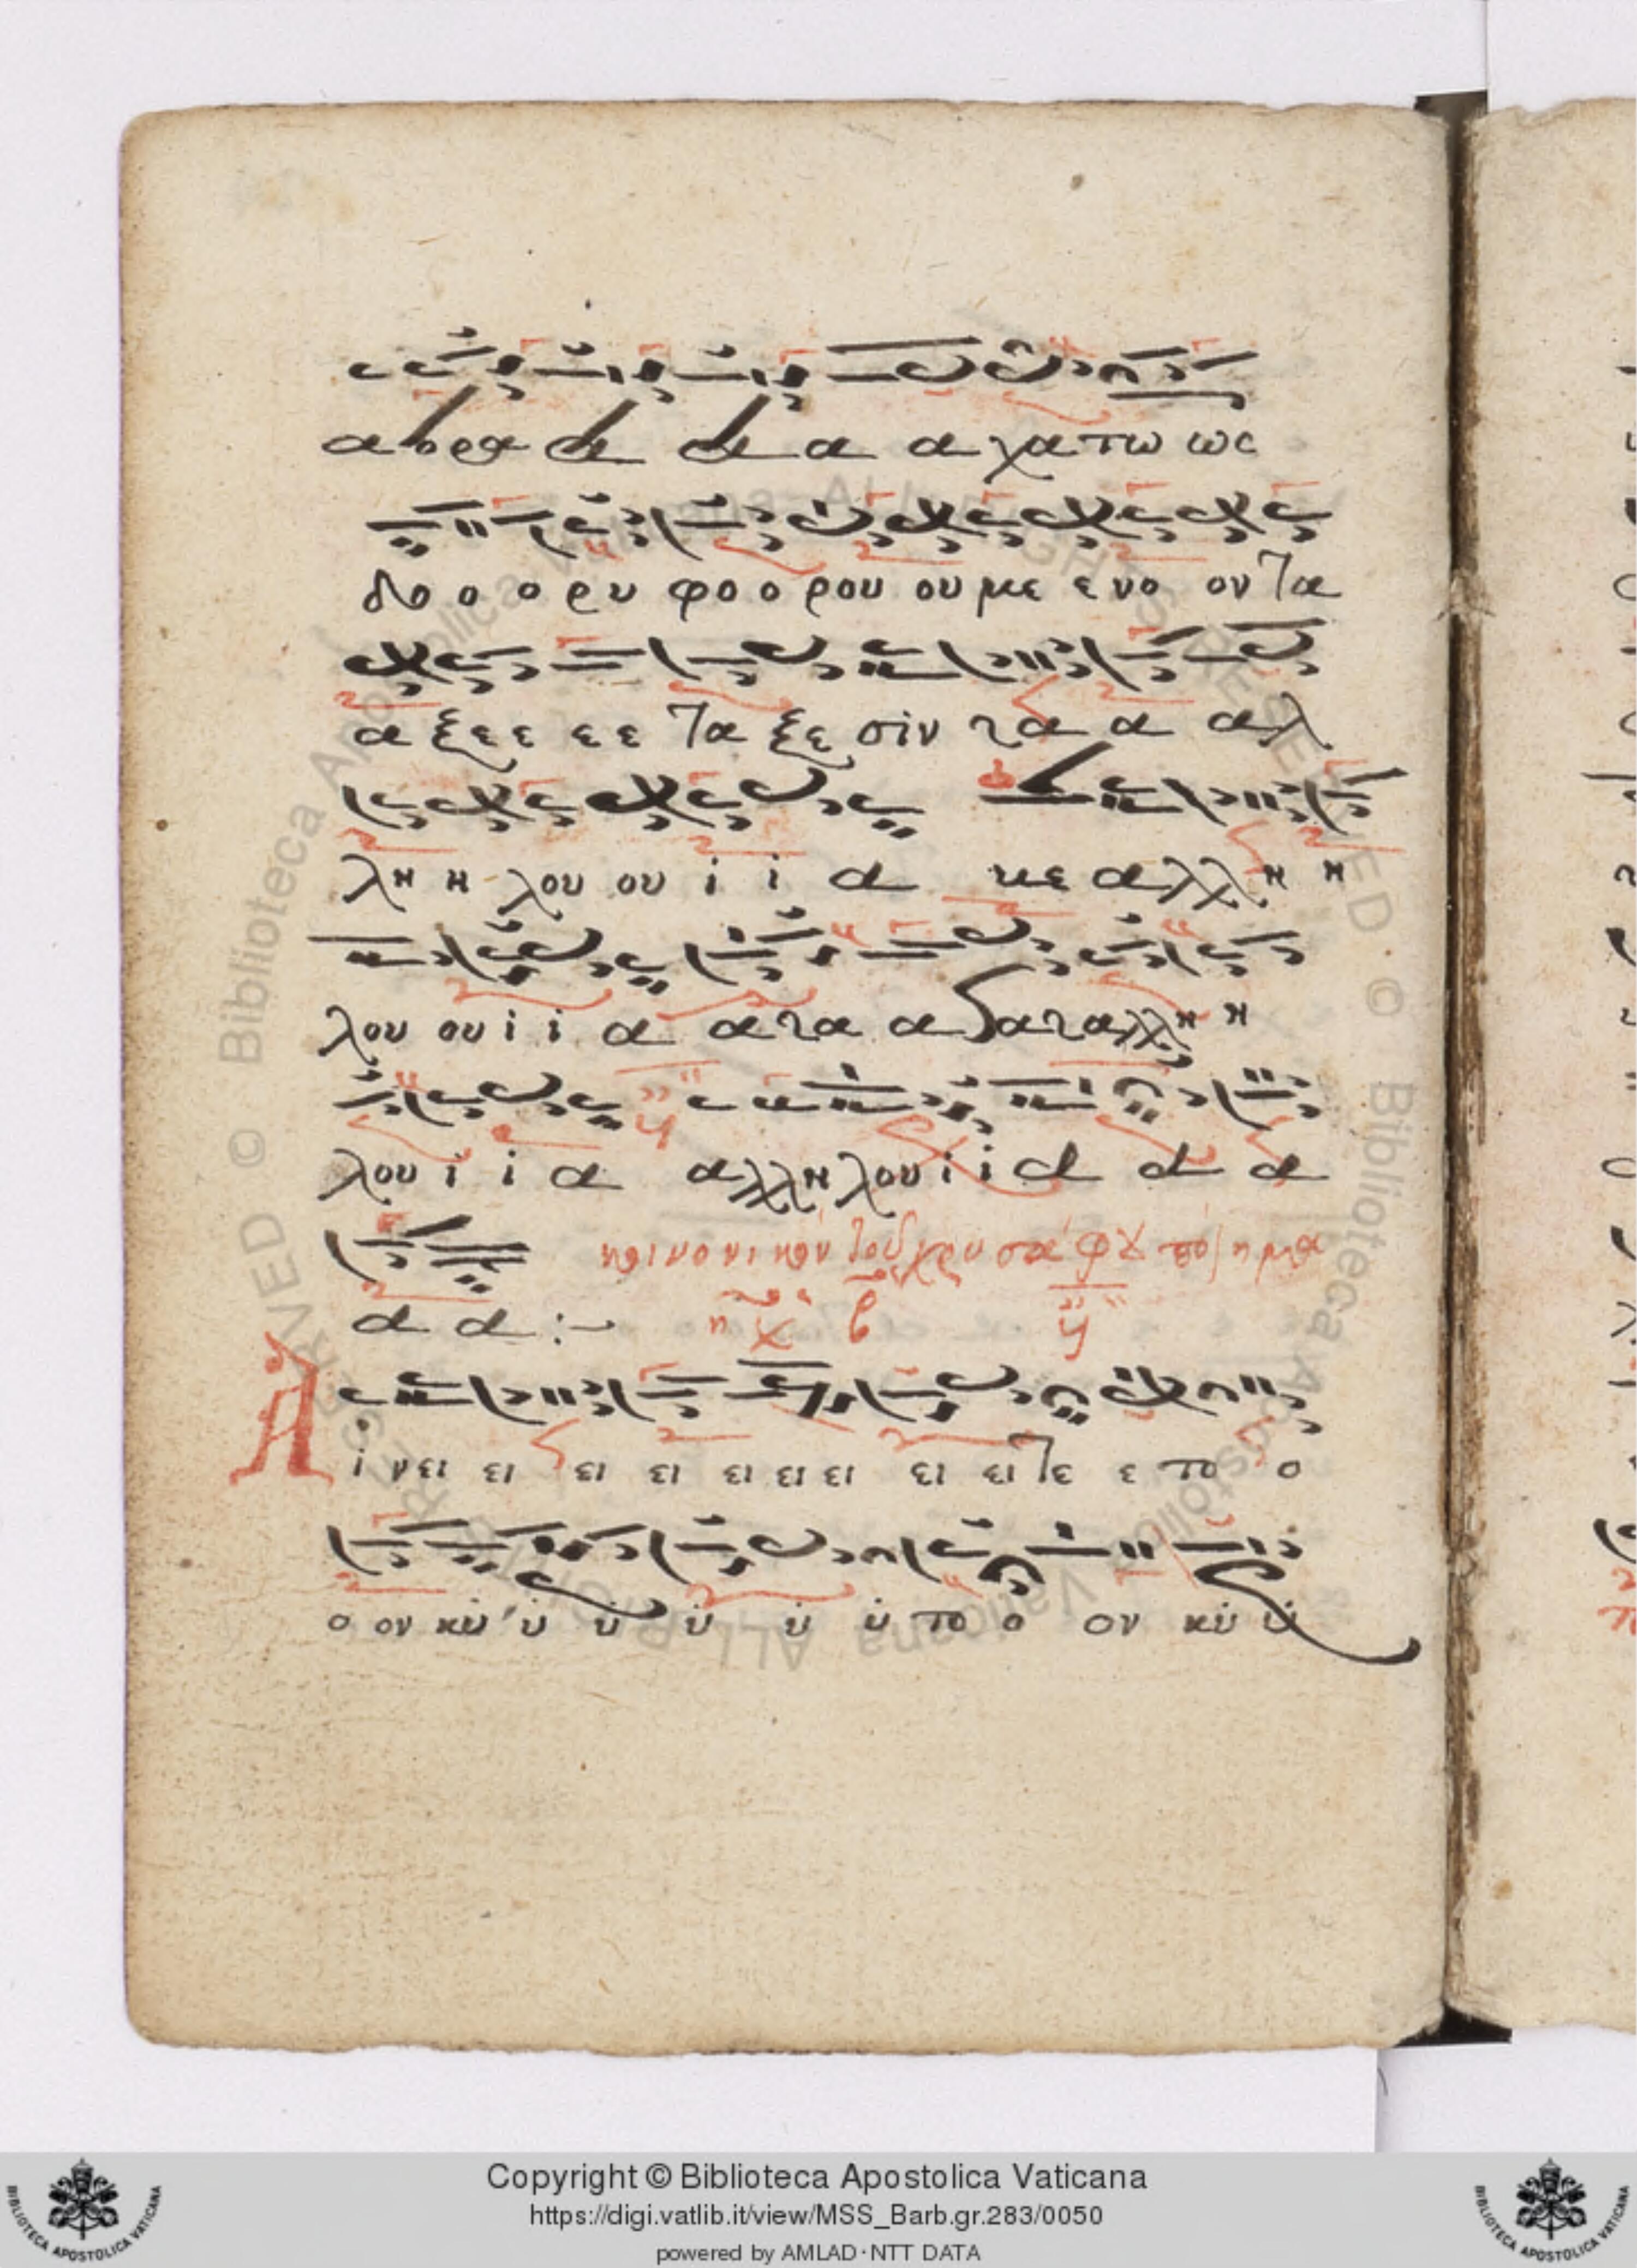 α ο ρα α α α α χα τω ως
δο ο ο ρυ φο ο ρου ου με ε νο ον Τα
α ξε ε ε ε ε Τα ξε σίν να α αλ
λη η λου ου ι ι α κε αλλη η
λου ου ι ι α α να α δαναλλη η
λου ι ι α αλληλου ι ι α α α
κοινονικον
α α :-
Α ι νει ει ει ει ει ει ει ει ει Τε ε το ο
ο ον κυ υ υ υ υ υ το ο ον κυ υ
Copyright © Biblioteca Apostolica Vaticana
https://digi.vatlib.it/view/MSS_Barb.gr.283/0050
powered by AMLAD·NTT DATA